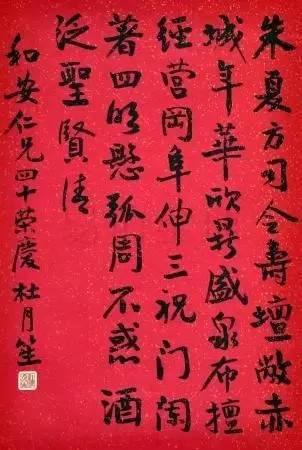 朱夏方司令壽壇敞赤
城年華欣昇盛泉布擅
經营岡阜伸三祝门闌
著四明懸弧周不惑酒
泛聖賢清
和安仁兄四十荣慶 杜月笙